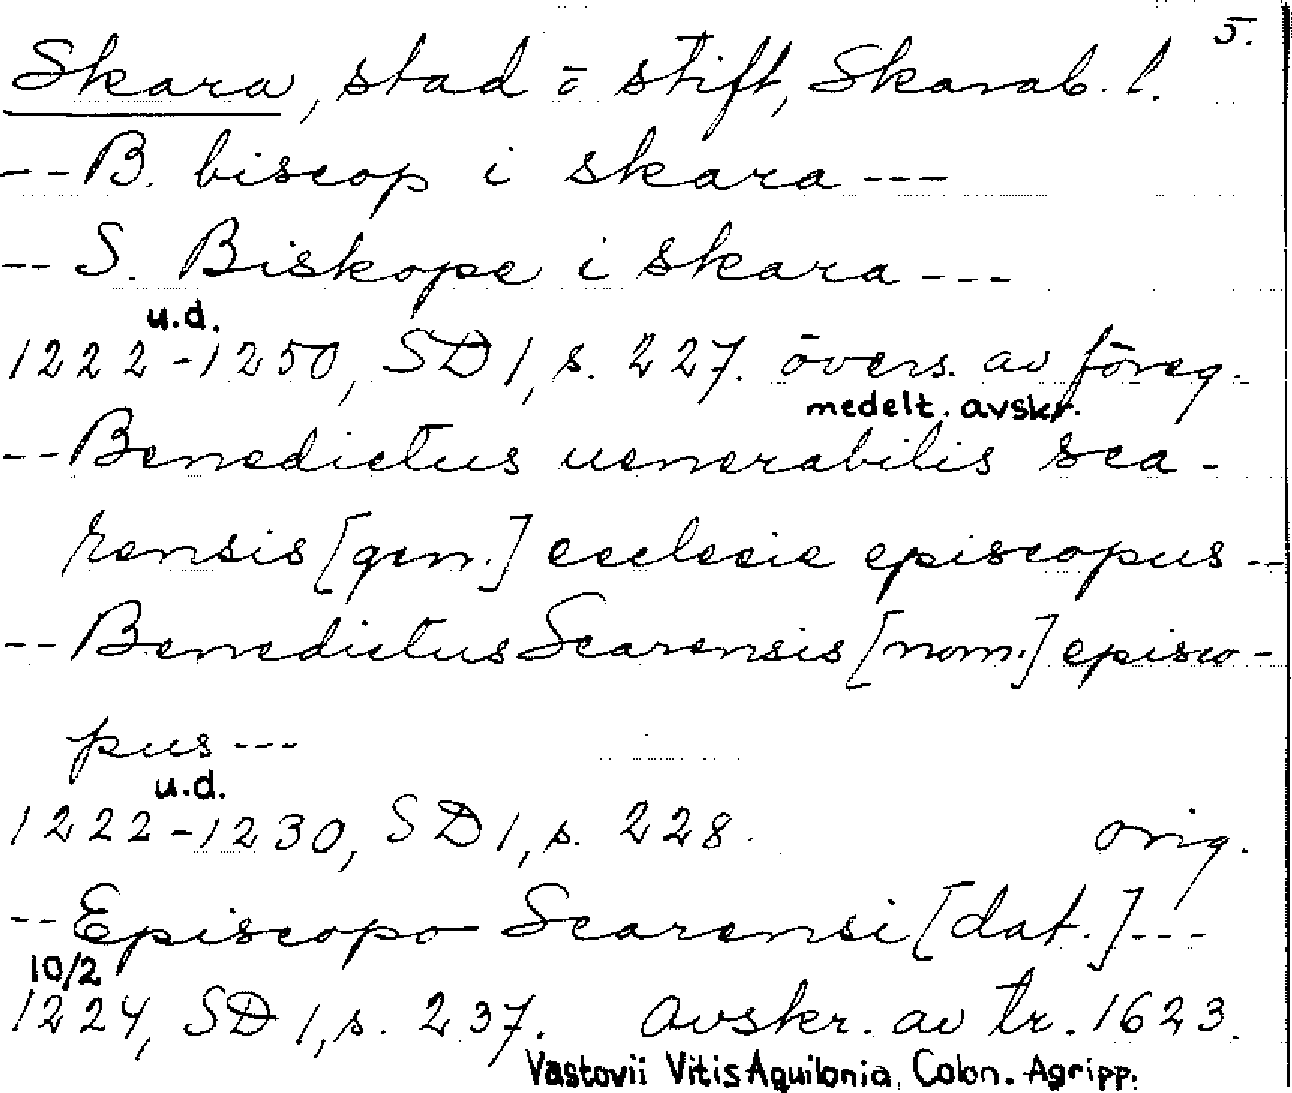 5.
Skara, stad o stift, Skarab. l.
--B. biscop i skara---
--S. Biskope i skara---
u.d.
1222-1250, SD 1, s. 227. övers. av föreg.
medelt. avskr.
--Benedictus uenerabilis sca-
rensis [gen.] ecclecie episcopus--
--Benedictus Scarensis [nom.] episco-
pus---
u.d.
1222-1230, SD 1, s. 228. orig.
--Episcopo Scarensi [dat.]---
10/2
1224, SD 1, s. 237. Avskr. av tr. 1623.
Vastovii Vitis Aquilonia, Colon. Agripp.